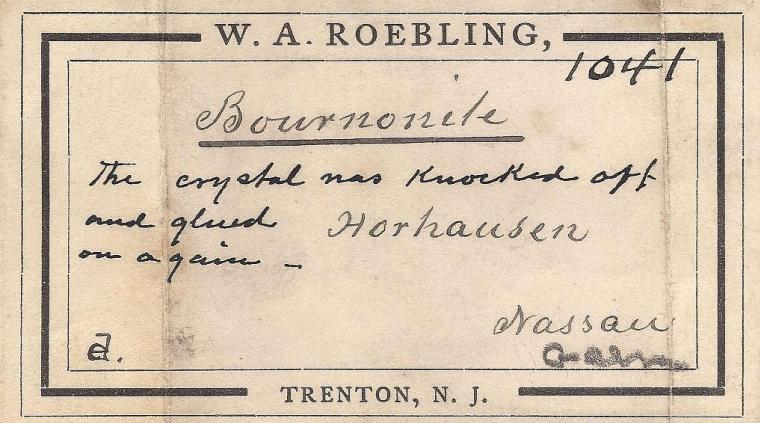 W. A. ROEBLING,
1041
Bournonite
The crystal was Knocked off
and glued Horhausen
on again –
Nassau
a.
TRENTON, N. J.